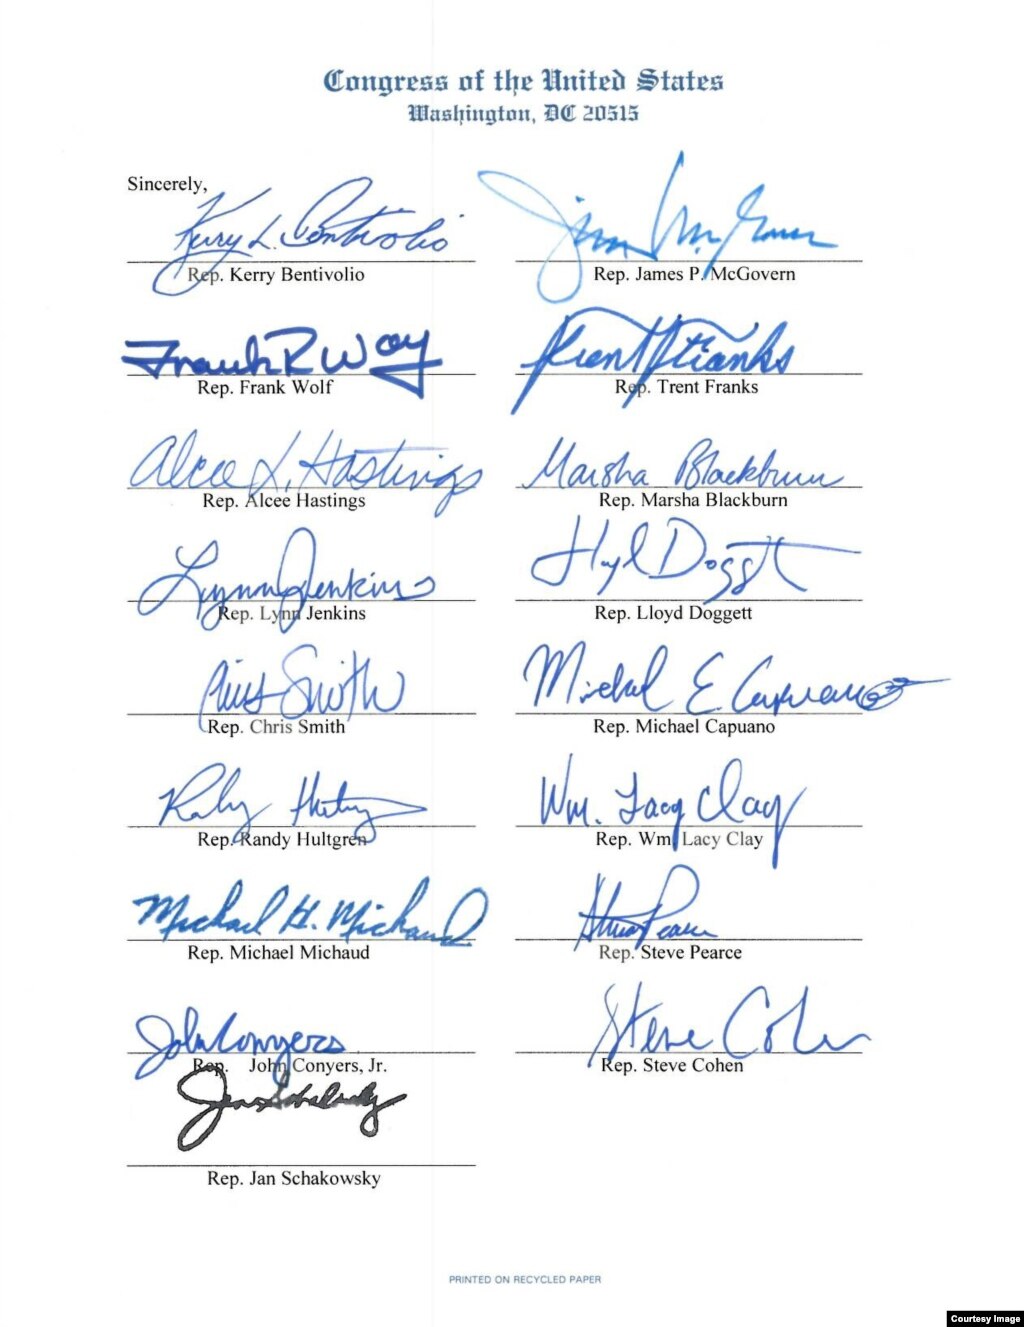 Congress of the United States
Washington, DC 20515
Sincerely,
Kerry L. Bentivolio
Jim McGovern
Rep. Kerry Bentivolio
Rep. James P. McGovern
Frank R Wolf
Trent Franks
Rep. Frank Wolf
Rep. Trent Franks
Alcee L. Hastings
Marsha Blackburn
Rep. Alcee Hastings
Rep. Marsha Blackburn
Lynn Jenkins
Lloyd Doggett
Rep. Lynn Jenkins
Rep. Lloyd Doggett
Chris Smith
Michael E. Capuano
Rep. Chris Smith
Rep. Michael Capuano
Randy Hultgren
Wm. Lacy Clay
Rep. Randy Hultgren
Rep. Wm. Lacy Clay
Michael H. Michaud
Steve Pearce
Rep. Michael Michaud
Rep. Steve Pearce
John Conyers
Steve Cohen
Rep. John Conyers, Jr.
Rep. Steve Cohen
Jan Schakowsky
Rep. Jan Schakowsky
PRINTED ON RECYCLED PAPER
Courtesy Image